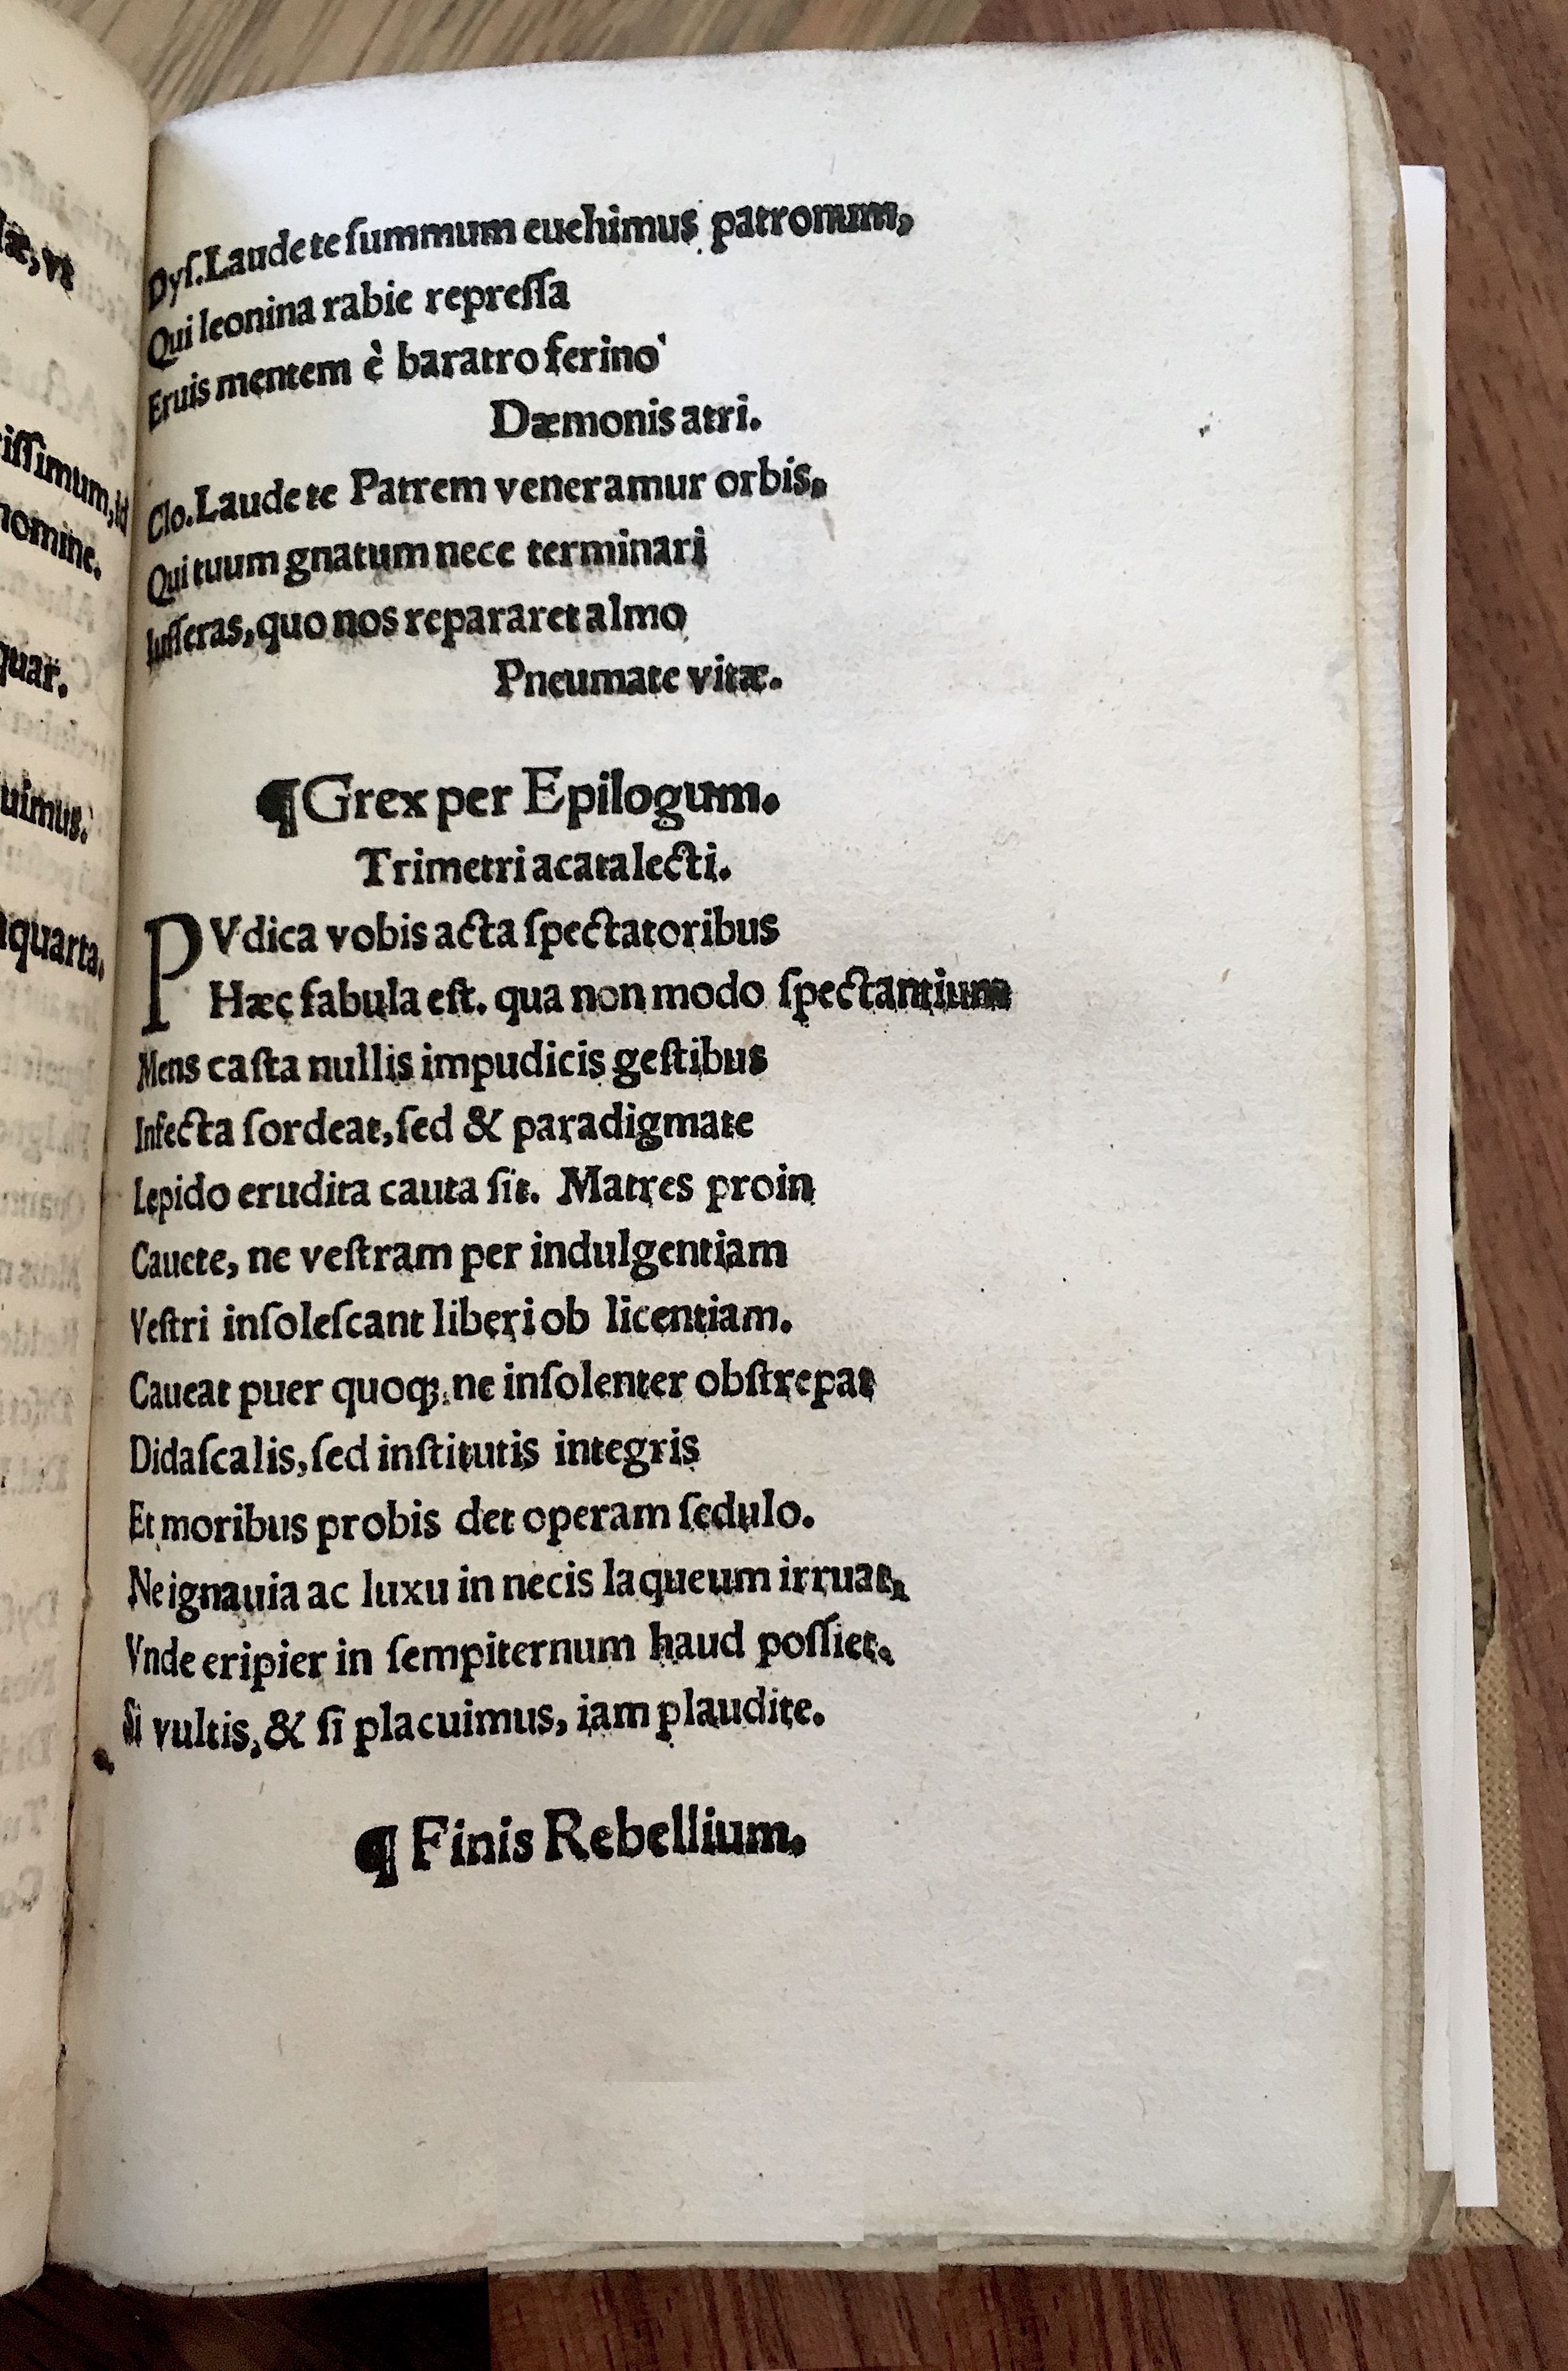 Dyſ. Laude te ſummum euehimus patronum,
Qui leonina rabie repreſſa
Eruis mentem è baratro ferino
Dæmonis atri.
Clo. Laude te Patrem veneramur orbis,
Qui tuum gnatum nece terminari
Iuſſeras, quo nos repararet almo
Pneumate vitæ.
¶ Grex per Epilogum.
Trimetri acatalecti.
PVdica vobis acta ſpectatoribus
Hæc fabula eſt. qua non modo ſpectantium
Mens caſta nullis impudicis geſtibus
Infecta ſordeat, ſed & paradigmate
Lepido erudita cauta ſit. Matres proin
Cauete, ne veſtram per indulgentiam
Veſtri inſoleſcant liberi ob licentiam.
Caueat puer quoqꝫ ne inſolenter obſtrepat
Didaſcalis, ſed inſtitutis integris
Et moribus probis det operam ſedulo.
Ne ignauia ac luxu in necis laqueum irruat,
Vnde eripier in ſempiternum haud poſſiet.
Si vultis, & ſi placuimus, iam plaudite.
¶ Finis Rebellium.
læ, vt
iſſimum, id
nomine.
quar.
uimus.
quarta.